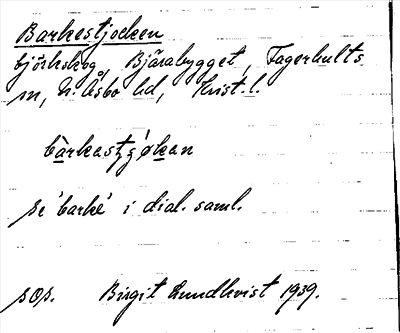 Barkestjocken
björkskog, Bjärabygget, Fagerhults
sn, n. Åsbo hd, Krist. l.
bàrkastʒøkan
se 'barke' i dial. saml.
søs. Birgit Lundkvist 1939.